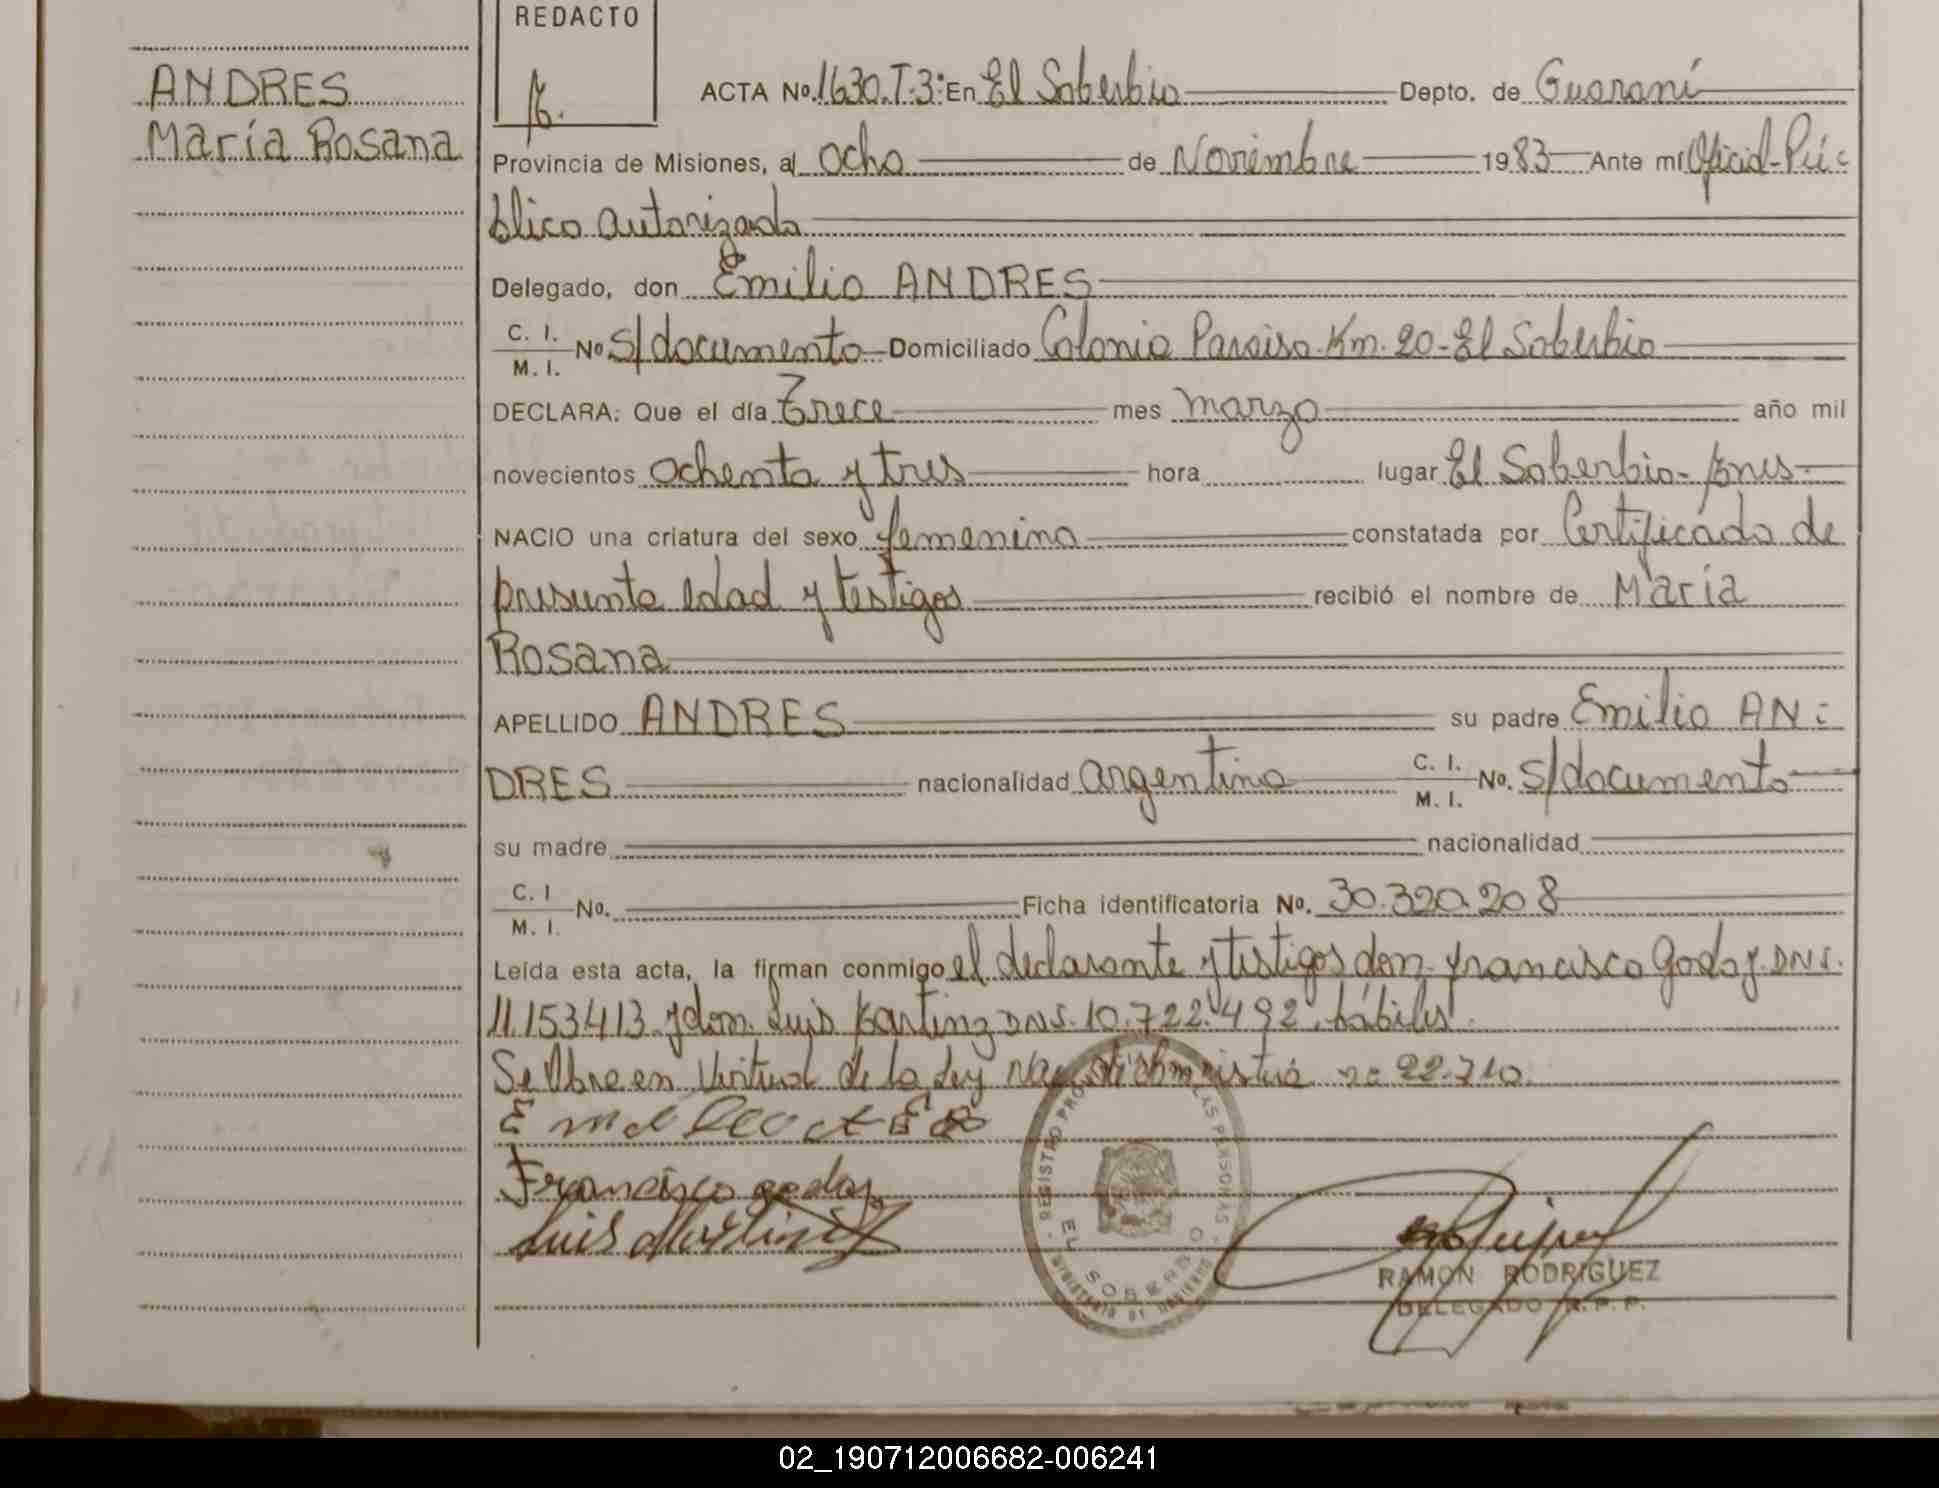 REDACTO
ANDRES
María Rosana
ACTA No. 1630.T.3: En El Soberbio Depto. de Guaraní
Provincia de Misiones, al ocho de Noviembre 1983 Ante mí Oficial-Pú-
blico autorizado
Delegado, don Emilio ANDRES
C. I. M. I. No s/documento Domiciliado Colonia Paraiso-Km. 20-El Soberbio
DECLARA: Que el día Trece mes marzo año mil
novecientos ochenta y tres hora lugar El Soberbio-
NACIO una criatura del sexo femenino constatada por Certificado de
presunta edad y testigos recibió el nombre de María
Rosana
APELLIDO ANDRES su padre Emilio AN-
DRES nacionalidad argentina C. I. M. I. No. s/documento
su madre nacionalidad
C. I M. I. No. Ficha identificatoria No. 30.320.208
Leída esta acta, la firman conmigo el declarante y testigos don Francisco Godoy. DNI.
11.153413 y don Luis DNI. 10.722.492, hábiles.
Se labra en Virtud de la Ley no 22.710.
Francisco godoy
Luis Martinez
REGISTRO PRO LAS PERSONAS
EL SOBERBIO
MINISTERIO DE GOBIERNO
RAMON RODRIGUEZ
DELEGADO R.P.P.
02_190712006682-006241